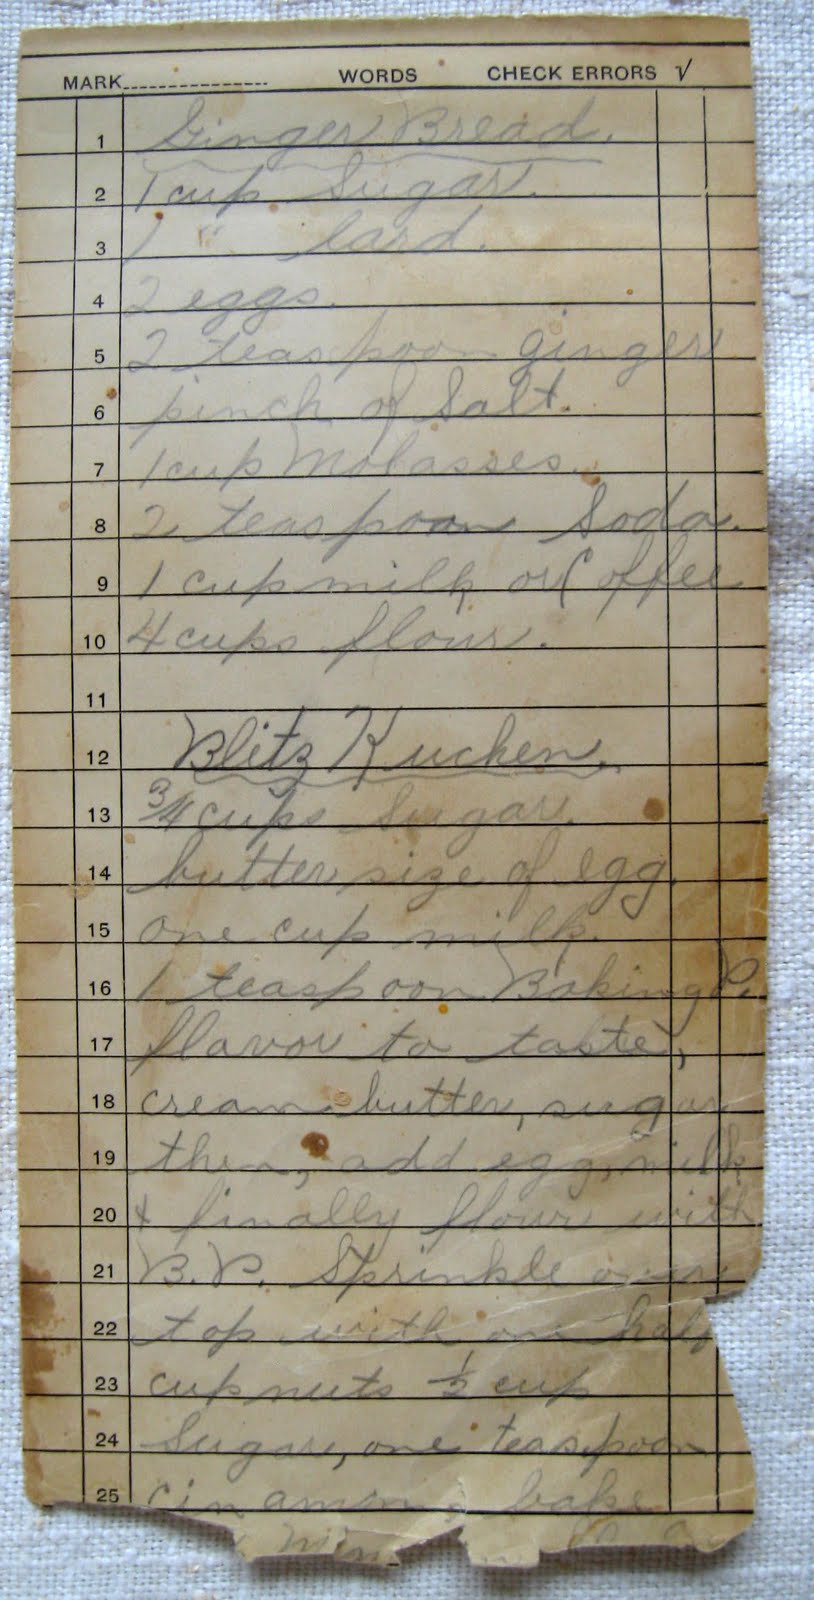 MARK WORDS CHECK ERRORS √
1 Ginger Bread.
2 1 cup Sugar.
3 1 " lard.
4 2 eggs.
5 2 teaspoon ginger
6 pinch of Salt.
7 1 cup Molasses.
8 2 teaspoon Soda.
9 1 cup milk or Coffee
10 4 cups flour.
11
12 Blitz Kuchen.
13 3/4 cups Sugar.
14 butter size of egg.
15 one cup milk.
16 1 teaspoon Baking P.
17 flavor to taste,
18 cream butter, sugar
19 then, add egg, milk
20 & finally flour with
21 B.P. Sprinkle over
22 top with one half
23 cup nuts 1/2 cup
24 Sugar, one teaspoon
25 cinamon, bake
min